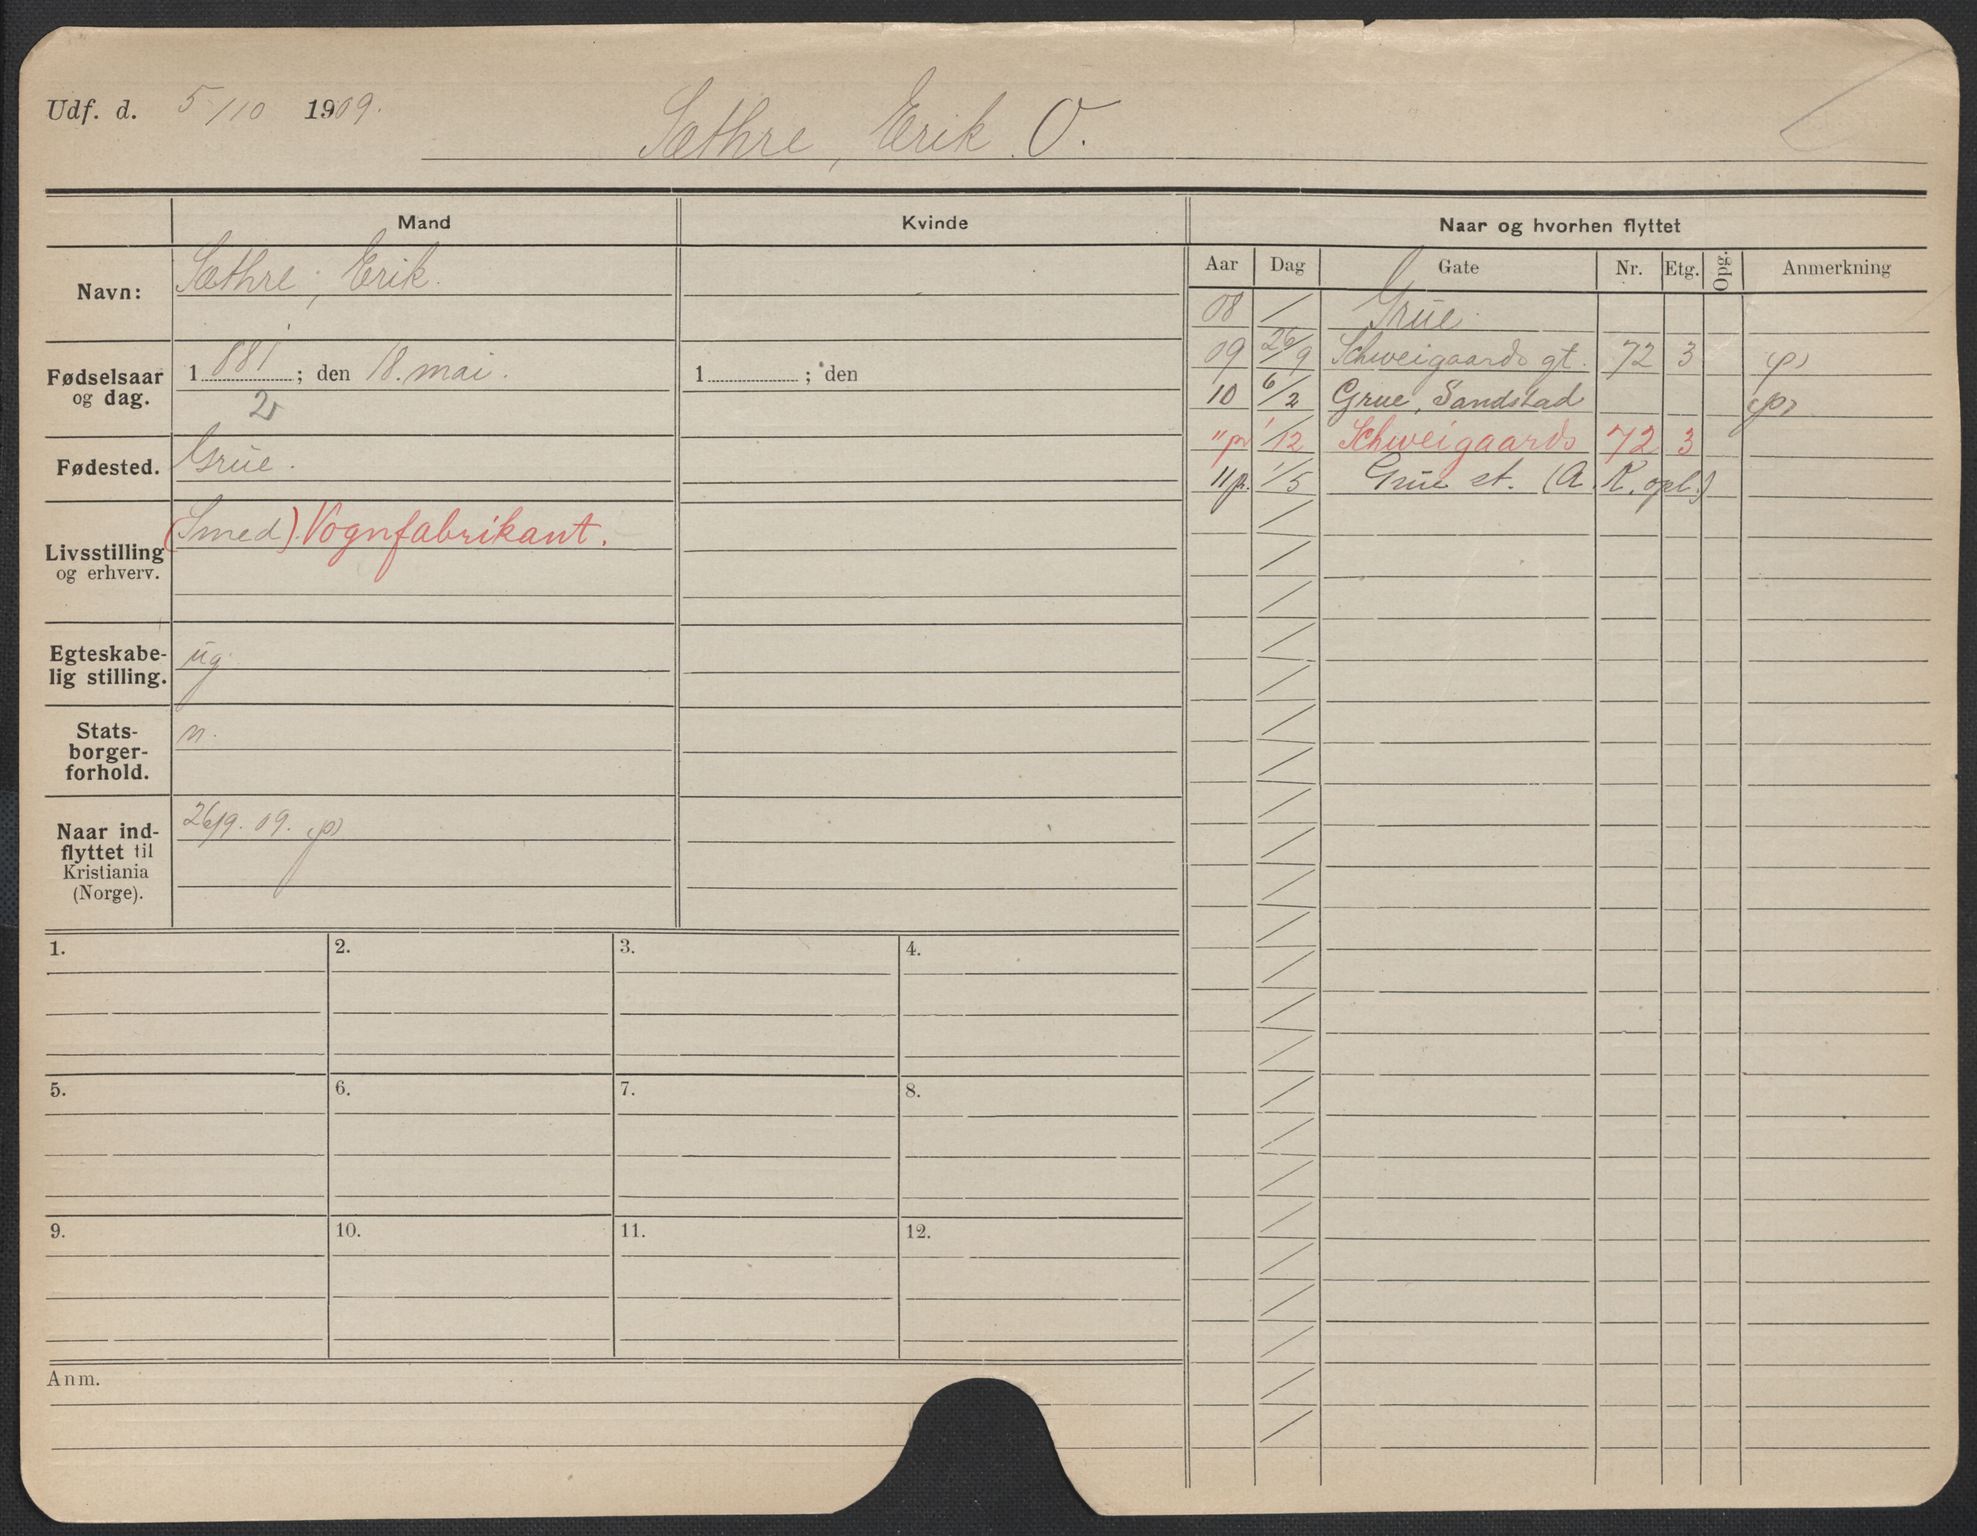 Udf. d. 5/10 1909.
Sæthre, Erik O.
Mand Kvinde Naar og hvorhen flyttet
Aar Dag Gate Nr. Etg. Opg. Anmerkning
Navn: Sæthre, Erik.
Fødselsaar og dag. 1881; den 18. mai. 1 ; den
2
Fødested. Grue.
Livsstilling og erhverv. (Smed) Vognfabrikant.
Egteskabe-
lig stilling. ug.
Stats-
borger-
forhold. n.
Naar ind-
flyttet til
Kristiania
(Norge). 26/9. 09. (p)
08 / Grue.
09 26/9 Schweigaards gt. 72 3 (p)
10 6/2 Grue, Sandstad (p)
" pr 1/12 Schweigaards 72 3
11 pr. 1/5 Grue st. (A. K. opl.)
1. 2. 3. 4.
5. 6. 7. 8.
9. 10. 11. 12.
Anm.